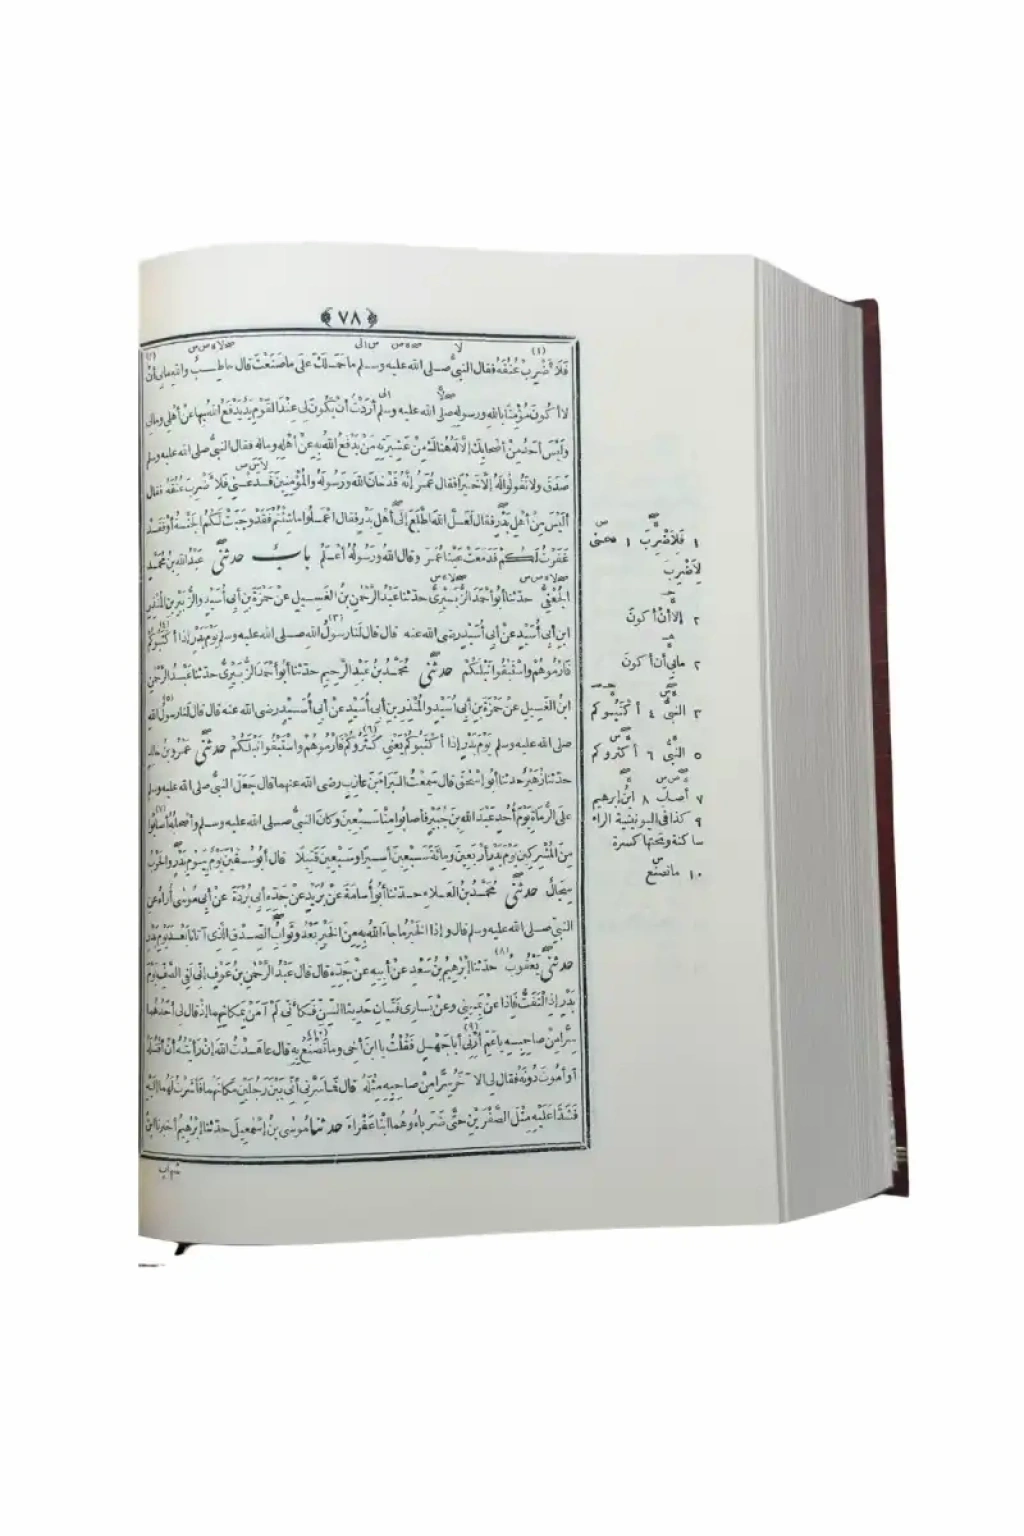 ﴿٧٨﴾
فَلِأَضْرِبْ عُنُقَهُ فقال النبيُّ صلى الله عليه وسلم ما حَمَلَكَ علَى ما صَنَعْتَ قال حاطِبٌ والله ما بِي أنْ
لا أكُونَ مُؤْمِنًا بالله ورسولِهِ صلى الله عليه وسلم أرَدْتُ أنْ يَكُونَ لِي عِنْدَ القَوْمِ يَدٌ يَدْفَعُ اللهُ بِها عنْ أهْلِي ومالِي
ولَيْسَ أحَدٌ مِنْ أصْحابِكَ إلَّا لَهُ هُناكَ مِنْ عَشِيرَتِهِ مَنْ يَدْفَعُ اللهُ بِهِ عنْ أهْلِهِ ومالِهِ فقال النبيُّ صلى الله عليه وسلم
صَدَقَ ولا تَقُولُوا لَهُ إلَّا خَيْرًا فقال عُمَرُ إنَّهُ قَدْ خانَ اللهَ ورَسُولَهُ والمُؤْمِنِينَ فَدَعْنِي فَلِأَضْرِبَ عُنُقَهُ فقال
ألَيْسَ مِنْ أهْلِ بَدْرٍ فقال لَعَلَّ اللهَ اطَّلَعَ إلَى أهْلِ بَدْرٍ فقال اعْمَلُوا ما شِئْتُمْ فَقَدْ وجَبَتْ لَكُمُ الجَنَّةُ أوْ فَقَدْ
غَفَرْتُ لَكُمْ فَدَمَعَتْ عَيْنا عُمَرَ وقال اللهُ ورَسُولُهُ أعْلَمُ بابٌ حدثنى عَبْدُ الله بنُ مُحَمَّدٍ
الجُعْفِيُّ حدثنا أبُو أحْمَدَ الزُّبَيْرِيُّ حدثنا عَبْدُ الرَّحْمٰنِ بنُ الغَسِيلِ عنْ حَمْزَةَ بنِ أبي أُسَيْدٍ والزُّبَيْرِ بنِ المُنْذِرِ
ابنِ أبي أُسَيْدٍ عنْ أبي أُسَيْدٍ رضى الله عنه قال قال لَنا رسولُ الله صلى الله عليه وسلم يَوْمَ بَدْرٍ إذا أكْثَبُوكُمْ
فَارْمُوهُمْ واسْتَبْقُوا نَبْلَكُمْ حدثنى مُحَمَّدُ بنُ عَبْدِ الرَّحِيمِ حدثنا أبُو أحْمَدَ الزُّبَيْرِيُّ حدثنا عَبْدُ الرَّحْمٰنِ
ابنُ الغَسِيلِ عنْ حَمْزَةَ بنِ أبي أُسَيْدٍ والمُنْذِرِ بنِ أبي أُسَيْدٍ عنْ أبي أُسَيْدٍ رضى الله عنه قال قال لَنا رسولُ الله
صلى الله عليه وسلم يَوْمَ بَدْرٍ إذا أكْثَبُوكُمْ يَعْنِي كَثَرُوكُمْ فَارْمُوهُمْ واسْتَبْقُوا نَبْلَكُمْ حدثنى عَمْرُو بنُ خالِدٍ
حدثنا زُهَيْرٌ حدثنا أبُو إسْحٰقَ قال سَمِعْتُ البَرَاءَ بنَ عازِبٍ رضى الله عنهما قال جَعَلَ النبيُّ صلى الله عليه وسلم
علَى الرُّماةِ يَوْمَ أُحُدٍ عَبْدَ الله بنَ جُبَيْرٍ فأصابُوا مِنَّا سَبْعِينَ وكانَ النبيُّ صلى الله عليه وسلم وأصْحابُهُ أصابُوا
مِنَ المُشْرِكِينَ يَوْمَ بَدْرٍ أرْبَعِينَ ومِائَةً سَبْعِينَ أسِيرًا وسَبْعِينَ قَتِيلًا قال أبُو سُفْيٰنَ يَوْمٌ بِيَوْمِ بَدْرٍ والحَرْبُ
سِجالٌ حدثنى مُحَمَّدُ بنُ العَلَاءِ حدثنا أبُو أُسامَةَ عنْ بُرَيْدٍ عنْ جَدِّهِ أبي بُرْدَةَ عنْ أبي مُوسَى أُراهُ عنِ
النبيِّ صلى الله عليه وسلم قال وإذا الخَيْرُ ما جاءَ اللهُ بِهِ مِنَ الخَيْرِ بَعْدُ وثَوَابُ الصِّدْقِ الَّذِي آتانا بَعْدَ يَوْمِ بَدْرٍ
حدثنى يَعْقُوبُ حدثنا إبْرٰهِيمُ بنُ سَعْدٍ عنْ أبِيهِ عنْ جَدِّهِ قال قال عَبْدُ الرَّحْمٰنِ بنُ عَوْفٍ إنِّي لَفِي الصَّفِّ يَوْمَ
بَدْرٍ إذِ الْتَفَتُّ فَإذا عنْ يَمِينِي وعنْ يَسارِي فَتَيانِ حَدِيثا السِّنِّ فَكَأنِّي لَمْ آمَنْ بِمَكانِهِما إذْ قال لِي أحَدُهُما
سِرًّا مِنْ صاحِبِهِ يا عَمِّ أرِنِي أبا جَهْلٍ فَقُلْتُ يا ابنَ أخِي وما تَصْنَعُ بِهِ قال عاهَدْتُ اللهَ إنْ رَأيْتُهُ أنْ أقْتُلَهُ
أوْ أمُوتَ دُونَهُ فقال لِي الآخَرُ سِرًّا مِنْ صاحِبِهِ مِثْلَهُ قال فَما سَرَّنِي أنِّي بَيْنَ رَجُلَيْنِ مَكانَهُما فَأشَرْتُ لَهُما إلَيْهِ
فَشَدَّا عَلَيْهِ مِثْلَ الصَّقْرَيْنِ حتَّى ضَرَباهُ وهُما ابْنا عَفْراءَ حدثنا مُوسَى بنُ إسْمٰعِيلَ حدثنا إبْرٰهِيمُ أخبرنا ابنُ
شهاب
١ فَلِأَضْرِبَ ١
لِأَضْرِبَ
٢ إلا أنْ أكونَ
٢ مابي أن أكونَ
٣ النبيُّ ٤ أكْثَبُوكم
٥ النبيُّ ٦ أكثروكم
٧ أصابَ ٨ ابنُ إبرهيم
٩ كذا فى اليونينية الراء
ساكنة وتحتها كسرة
١٠ ما تصنع